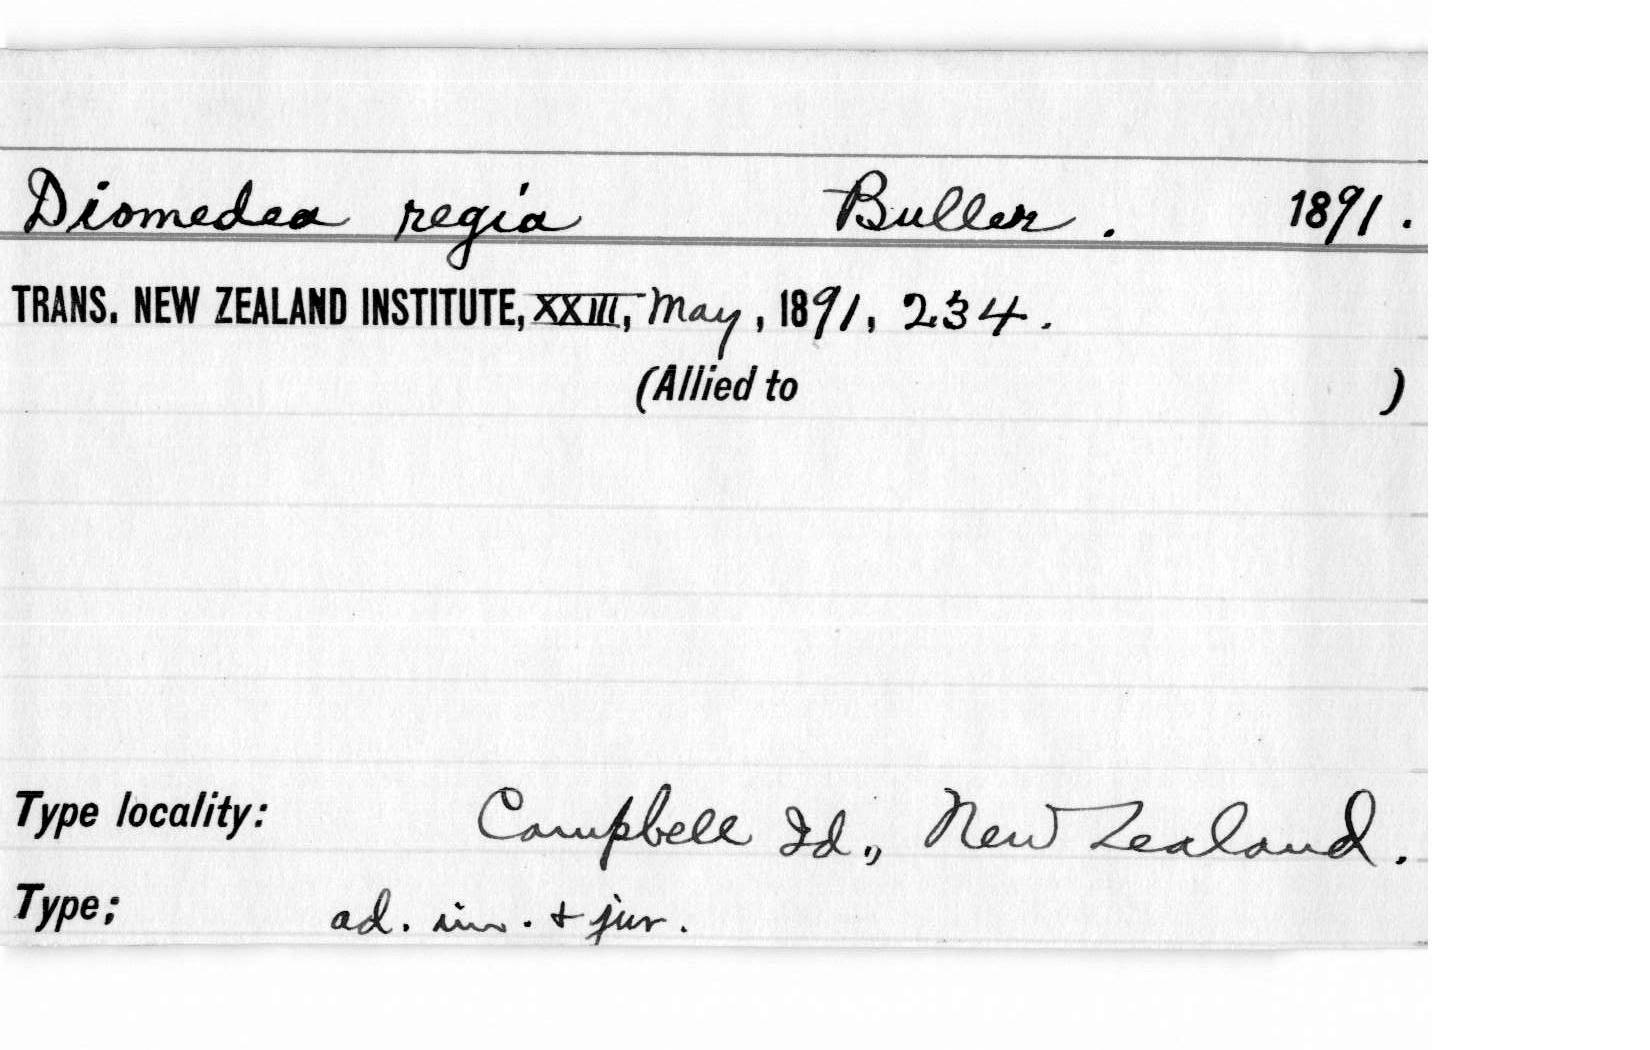 Diomedea regia Buller. 1891.
TRANS. NEW ZEALAND INSTITUTE, XXIII, May, 1891, 234.
(Allied to )
Type locality: Campbell Id., New Zealand.
Type; ad. im. + juv.